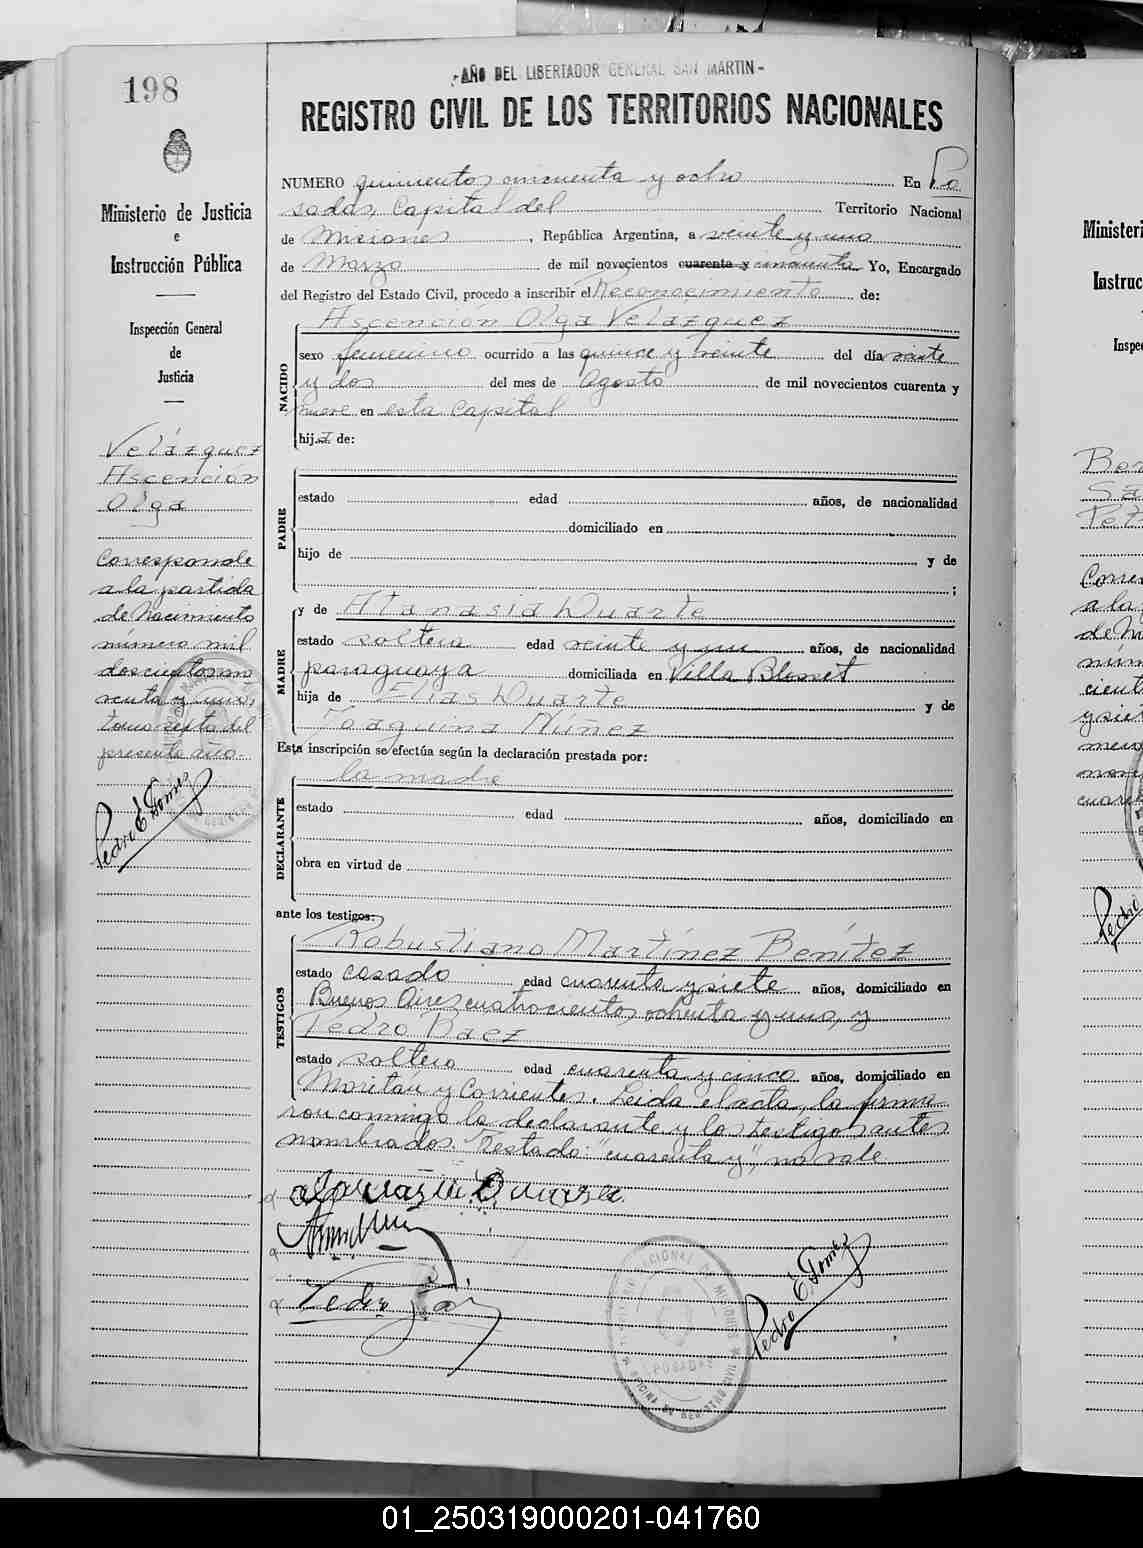 198
-AÑO DEL LIBERTADOR GENERAL SAN MARTIN-
REGISTRO CIVIL DE LOS TERRITORIOS NACIONALES
Ministerio de Justicia
e
Instrucción Pública
Inspección General
de
Justicia
Velázquez
Ascención
Olga
Corresponde
a la partida
de Nacimiento
número mil
doscientos
renta y uno,
tomo sexto del
presente año.
Pedro E. Gomez
NUMERO quinientos cincuenta y ocho En Po
sadas, Capital del Territorio Nacional
de Misiones, República Argentina, a veinte y uno
de Marzo de mil novecientos cuarenta y cincuenta Yo, Encargado
del Registro del Estado Civil, procedo a inscribir el Reconocimiento de:
NACIDO
Ascención Olga Velázquez
sexo femenino ocurrido a las quince y veinte del día veinte
y dos del mes de Agosto de mil novecientos cuarenta y
nueve en esta Capital
hija de:
PADRE
estado edad años, de nacionalidad
domiciliado en
hijo de y de
;
MADRE
y de Atanasia Duarte
estado soltera edad veinte y un años, de nacionalidad
paraguaya domiciliada en Villa Blosset
hija de Elías Duarte y de
Joaquina Núñez
Esta inscripción se efectúa según la declaración prestada por:
la madre
DECLARANTE
estado edad años, domiciliado en
obra en virtud de
ante los testigos:
TESTIGOS
Robustiano Martínez Benítez
estado casado edad cuarenta y siete años, domiciliado en
Buenos Aires cuatrocientos ochenta y uno, y
Pedro Baez
estado soltero edad cuarenta y cinco años, domiciliado en
y Corrientes. Leida el acta, la firma
ron conmigo la declarante y los testigos antes
nombrados. Testado: "cuarenta y", no vale.
Atanazia Duarte
Pedro Baez
Pedro E. Gomez
POSADAS
OFICINA DE REGISTRO CIVIL
Ministeri
Instruc
Inspe
Corre
a la
01_250319000201-041760